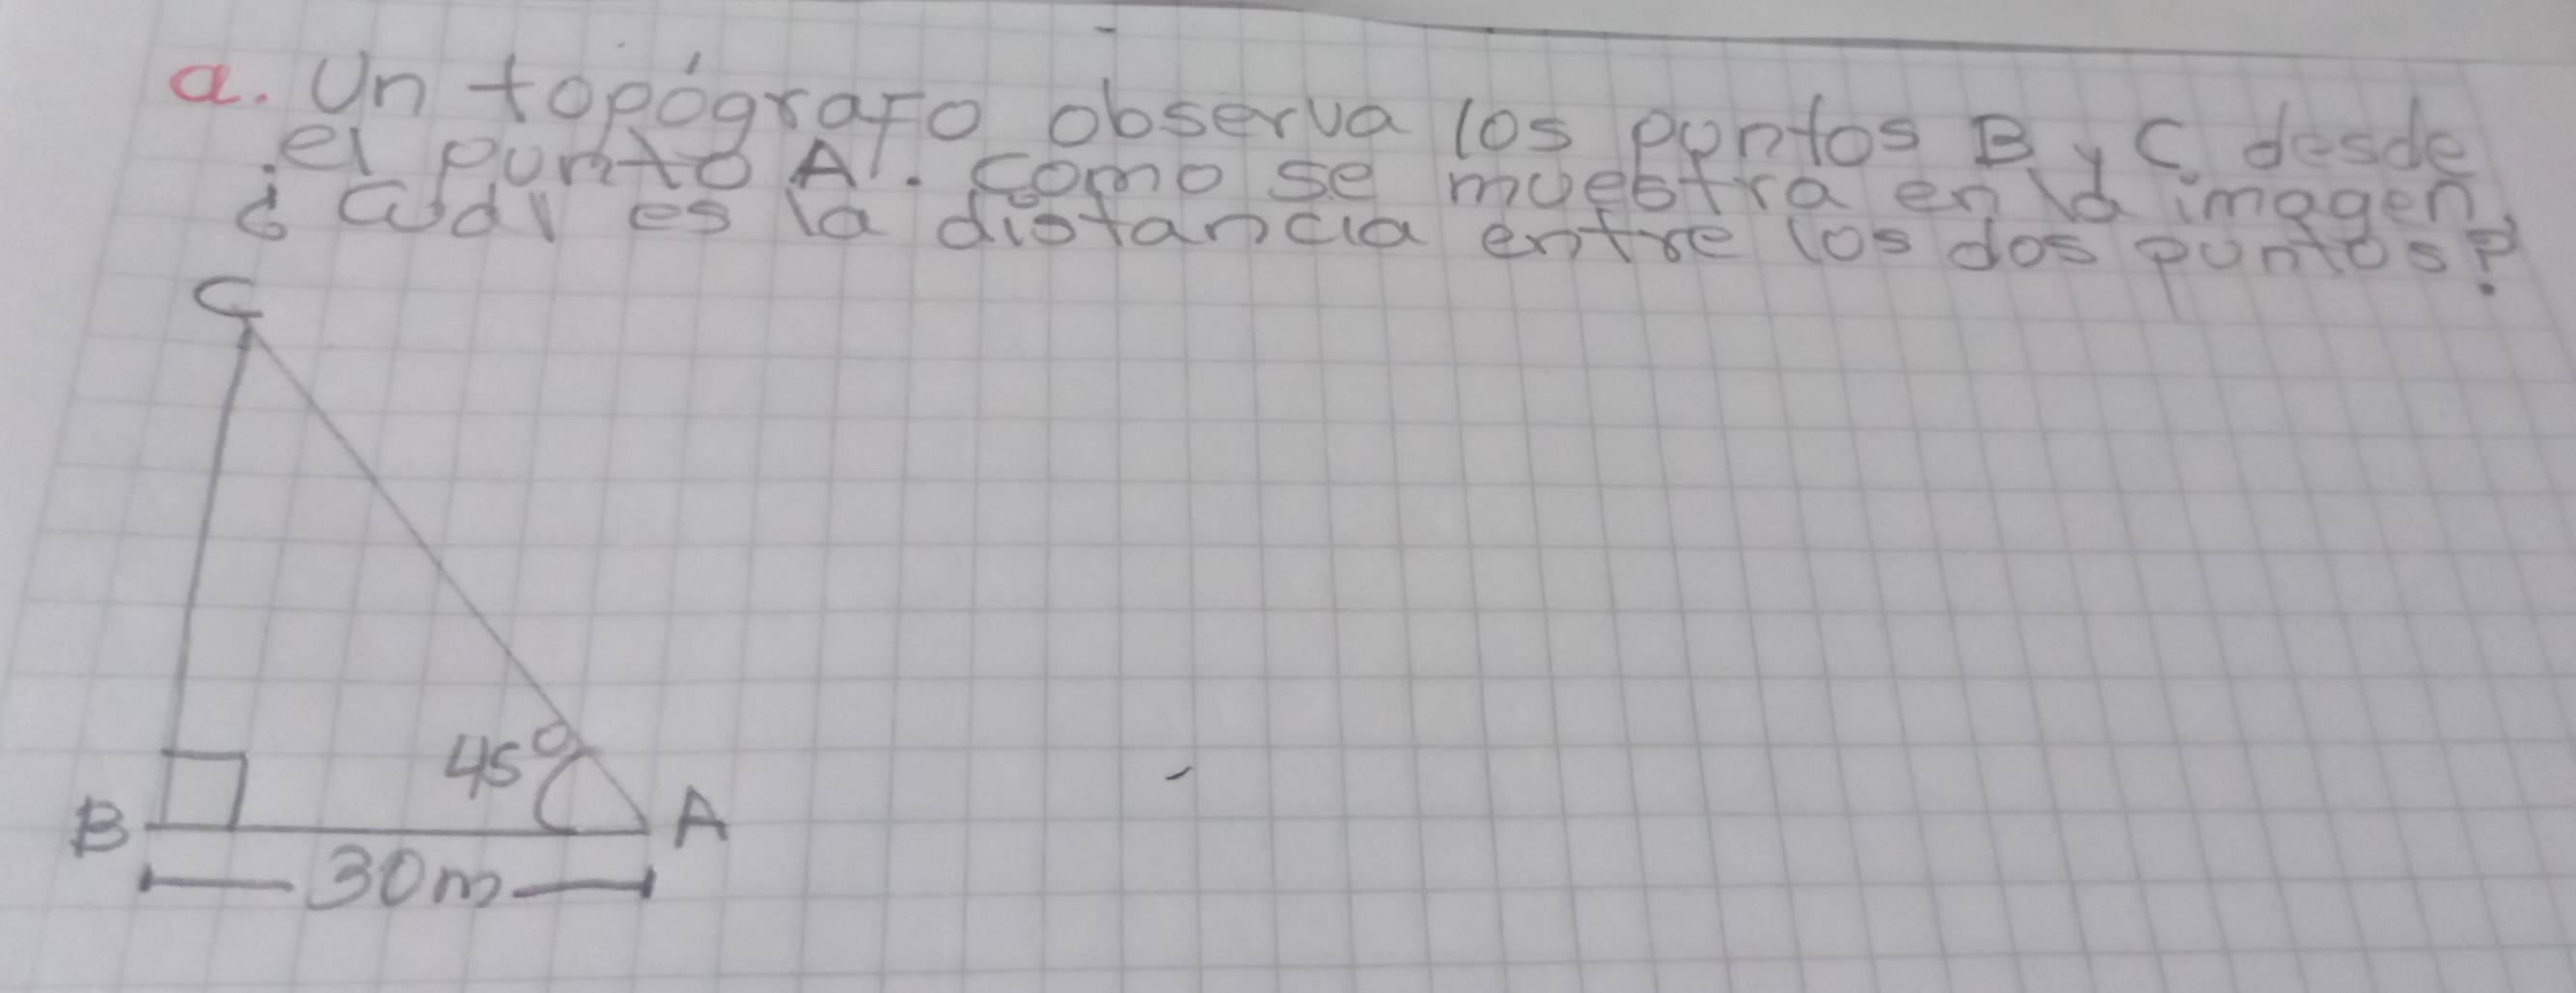 a. Un topógrafo observa los puntos B y C desde
el punto A. como se muestra en la imagen,
¿Cuál es la distancia entre los dos puntos?
C
45°
B
A
30m